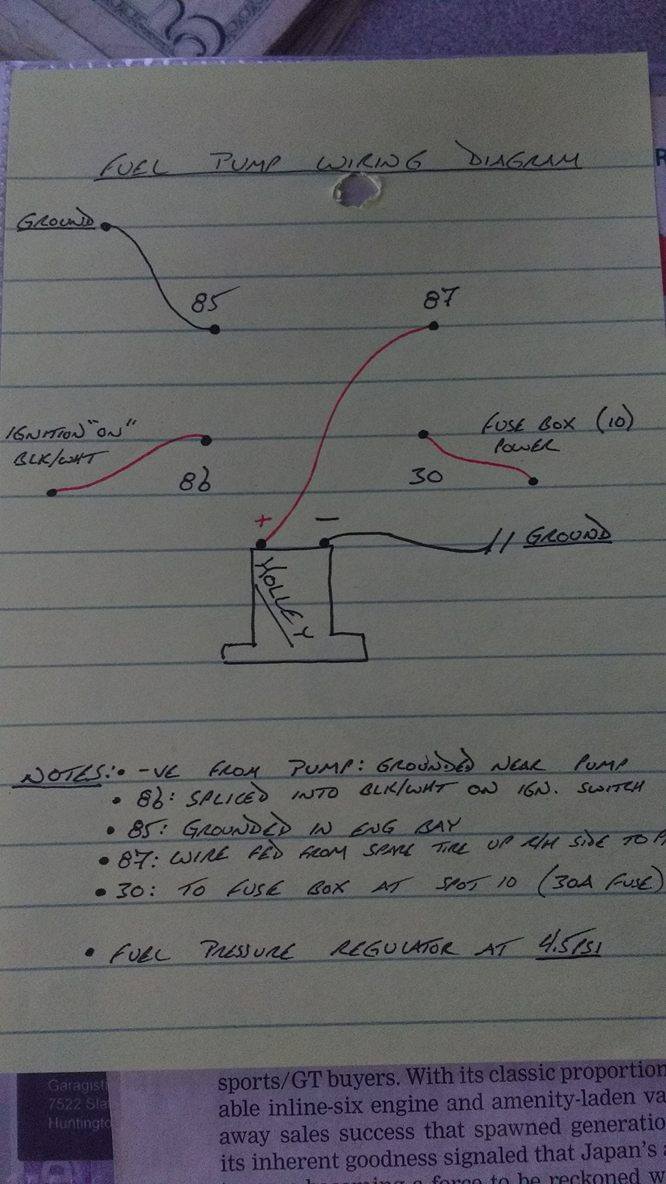 FUEL PUMP WIRING DIAGRAM
GROUND
85
87
IGNITION "ON"
BLK/WHT
86
30
FUSE BOX (10)
POWER
+ -
GROUND
HOLLEY
NOTES: • -VE FROM PUMP: GROUNDED NEAR PUMP
• 86: SPLICED INTO BLK/WHT ON IGN. SWITCH
• 85: GROUNDED IN ENG BAY
• 87: WIRE FED FROM SPARE TIRE UP R/H SIDE TO
• 30: TO FUSE BOX AT SPOT 10 (30A FUSE)
• FUEL PRESSURE REGULATOR AT 4.5PSI
Garagist
7522 Sla
Huntingto
sports/GT buyers. With its classic proportion
able inline-six engine and amenity-laden va
away sales success that spawned generatio
its inherent goodness signaled that Japan's a
becoming a force to be reckoned w